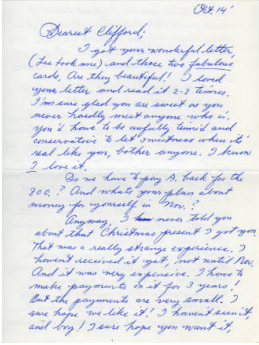 Oct 14'
Dearest Clifford;
I got your wonderful letter,
(Lee took me) and those two fabulous
cards. Are they beautiful! I loved
your letter and read it 2-3 times.
I'm sure glad you are sweet as you
never hardly meet anyone who is.
You'd have to be awfully timid and
conservative to let sweetness when it's
real like you, bother anyone. I know
I love it.
Do we have to pay D. back for the
800.? And whats your plan about
money for yourself in Nov.?
Anyway, I never told you
about that Christmas present I got you.
That was a really strange experience. I
haven't received it yet, not until Nov.
And it was very expensive. I have to
make payments on it for 3 years!
But the payments are very small. I
sure hope we like it! I haven't seen it,
and boy! I sure hope you want it,